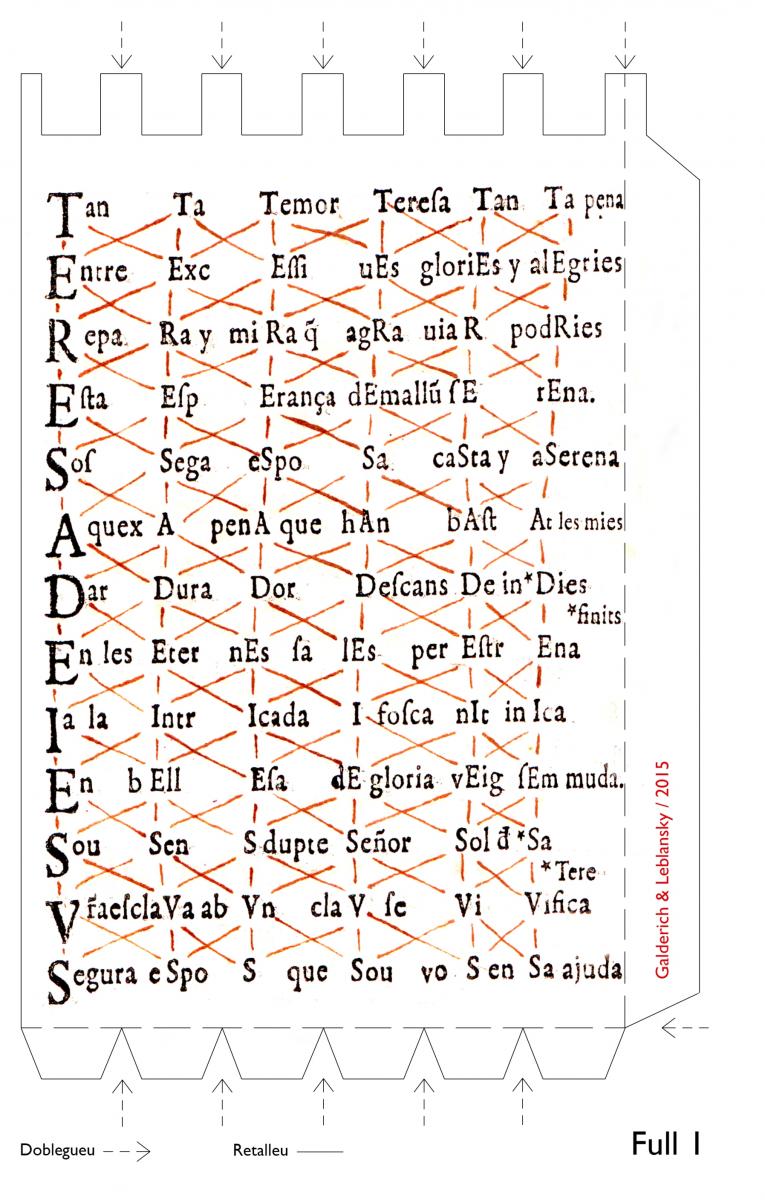 Tan Ta Temor Tereſa Tan Ta pena
Entre Exc Eſſi uEs gloriEs y alEgries
Repa Ra y mi Ra q̃ agRa uia R podRies
Eſta Eſp Erança dEmallũ ſE rEna.
Soſ Sega eSpo Sa caSta y aSerena
Aquex A penA que hAn bAſt At les mies
Dar Dura Dor Deſcans De in*Dies
*finits
En les Eter nEs ſa lEs per Eſtr Ena
Ia la Intr Icada I foſca nIt in Ica
En b Ell Eſa dE gloria vEig ſEm muda.
Sou Sen S dupte Señor Sol đ *Sa
*Tere
Vr̃aeſclaVa ab Vn cla V ſe Vi Vifica
Segura e Spo S que Sou vo S en Sa ajuda
Galderich & Leblansky / 2015
Doblegueu Retalleu
Full 1